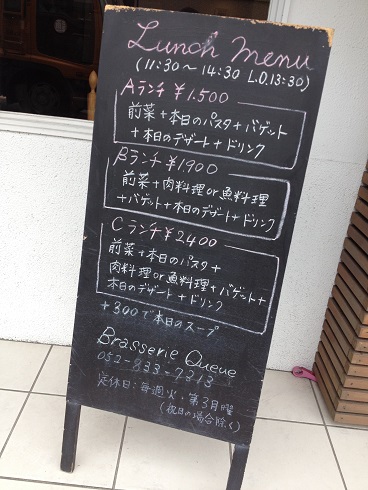 Lunch Menu
(11:30～14:30 L.O.13:30)
Aランチ ¥1.500
前菜+本日のパスタ+バゲット
+本日のデザート+ドリンク
Bランチ ¥1.900
前菜+肉料理or魚料理
+バゲット+本日のデザート+ドリンク
Cランチ ¥2400
前菜+本日のパスタ+
肉料理or魚料理+バゲット+
本日のデザート+ドリンク
+300で本日のスープ
Brasserie Queue
052-833-7313
定休日:毎週火・第3月曜
(祝日の場合除く)